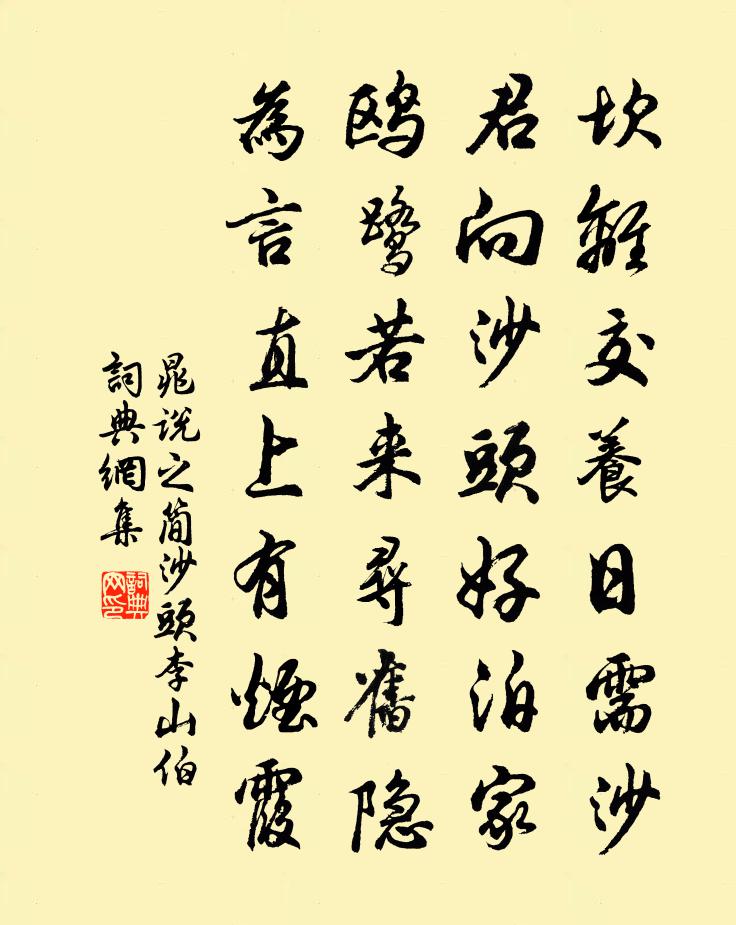 坎離交養日需沙
君向沙頭好泊家
鸥鹭若来尋舊隐
為言直上有煙霞
晁说之简沙頭李山伯
詞典網集
詞典网印